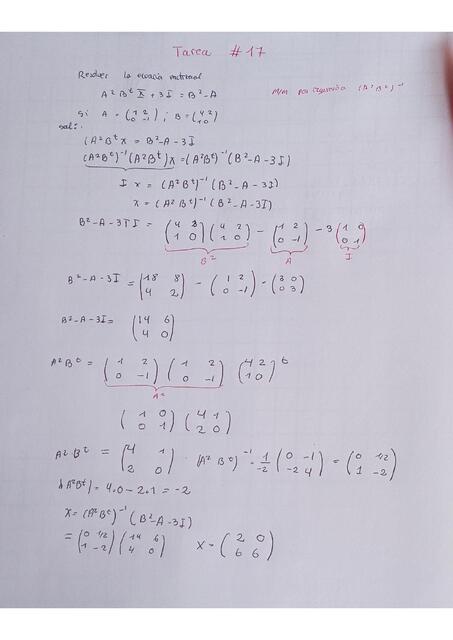 Tarea #17
Resolver la ecuación matricial
A²Bᵗ X + 3I = B² - A
m/m por izquierda (A²Bᵗ)⁻¹
Si A = (1 2; 0 -1) ; B = (4 2; 1 0)
sol:.
(A²Bᵗ X = B² - A - 3I
(A²Bᵗ)⁻¹ (A²Bᵗ) X = (A²Bᵗ)⁻¹ (B² - A - 3I)
I x = (A²Bᵗ)⁻¹ (B² - A - 3I)
x = (A²Bᵗ)⁻¹ (B² - A - 3I)
B² - A - 3 I = (4 2; 1 0) (4 2; 1 0) - (1 2; 0 -1) - 3 (1 0; 0 1)
B² A I
B² - A - 3I = (18 8; 4 2) - (1 2; 0 -1) - (3 0; 0 3)
B² - A - 3I = (14 6; 4 0)
A²Bᵗ = (1 2; 0 -1) (1 2; 0 -1) (4 2; 1 0)ᵗ
A²
(1 0; 0 1) (4 1; 2 0)
A²Bᵗ = (4 1; 2 0) (A²Bᵗ)⁻¹ = 1/-2 (0 -1; -2 4) = (0 1/2; 1 -2)
|A²Bᵗ| = 4.0 - 2.1 = -2
X = (A²Bᵗ)⁻¹ (B² - A - 3I)
= (0 1/2; 1 -2) (14 6; 4 0) X = (2 0; 6 6)